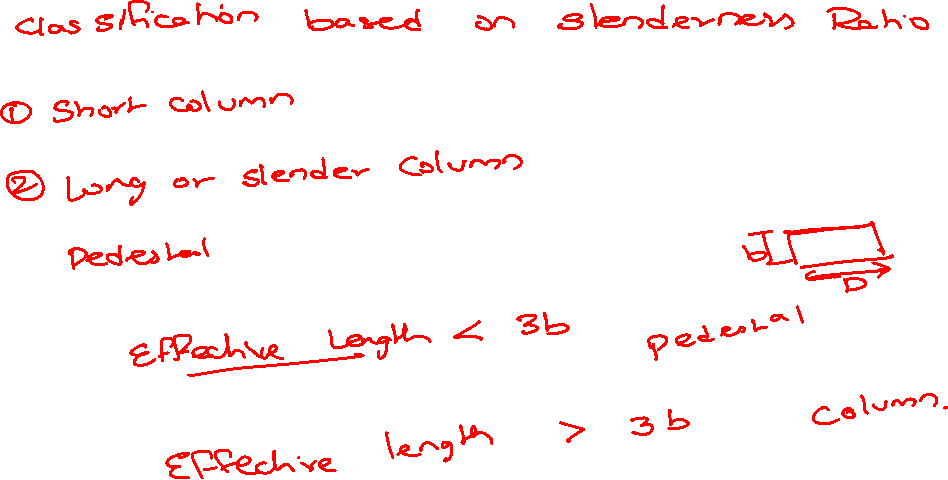 Classification based on slenderness Ratio
① Short column
② Long or slender column
Pedestal
b
D
Effective Length < 3b pedestal
Effective length > 3b column.